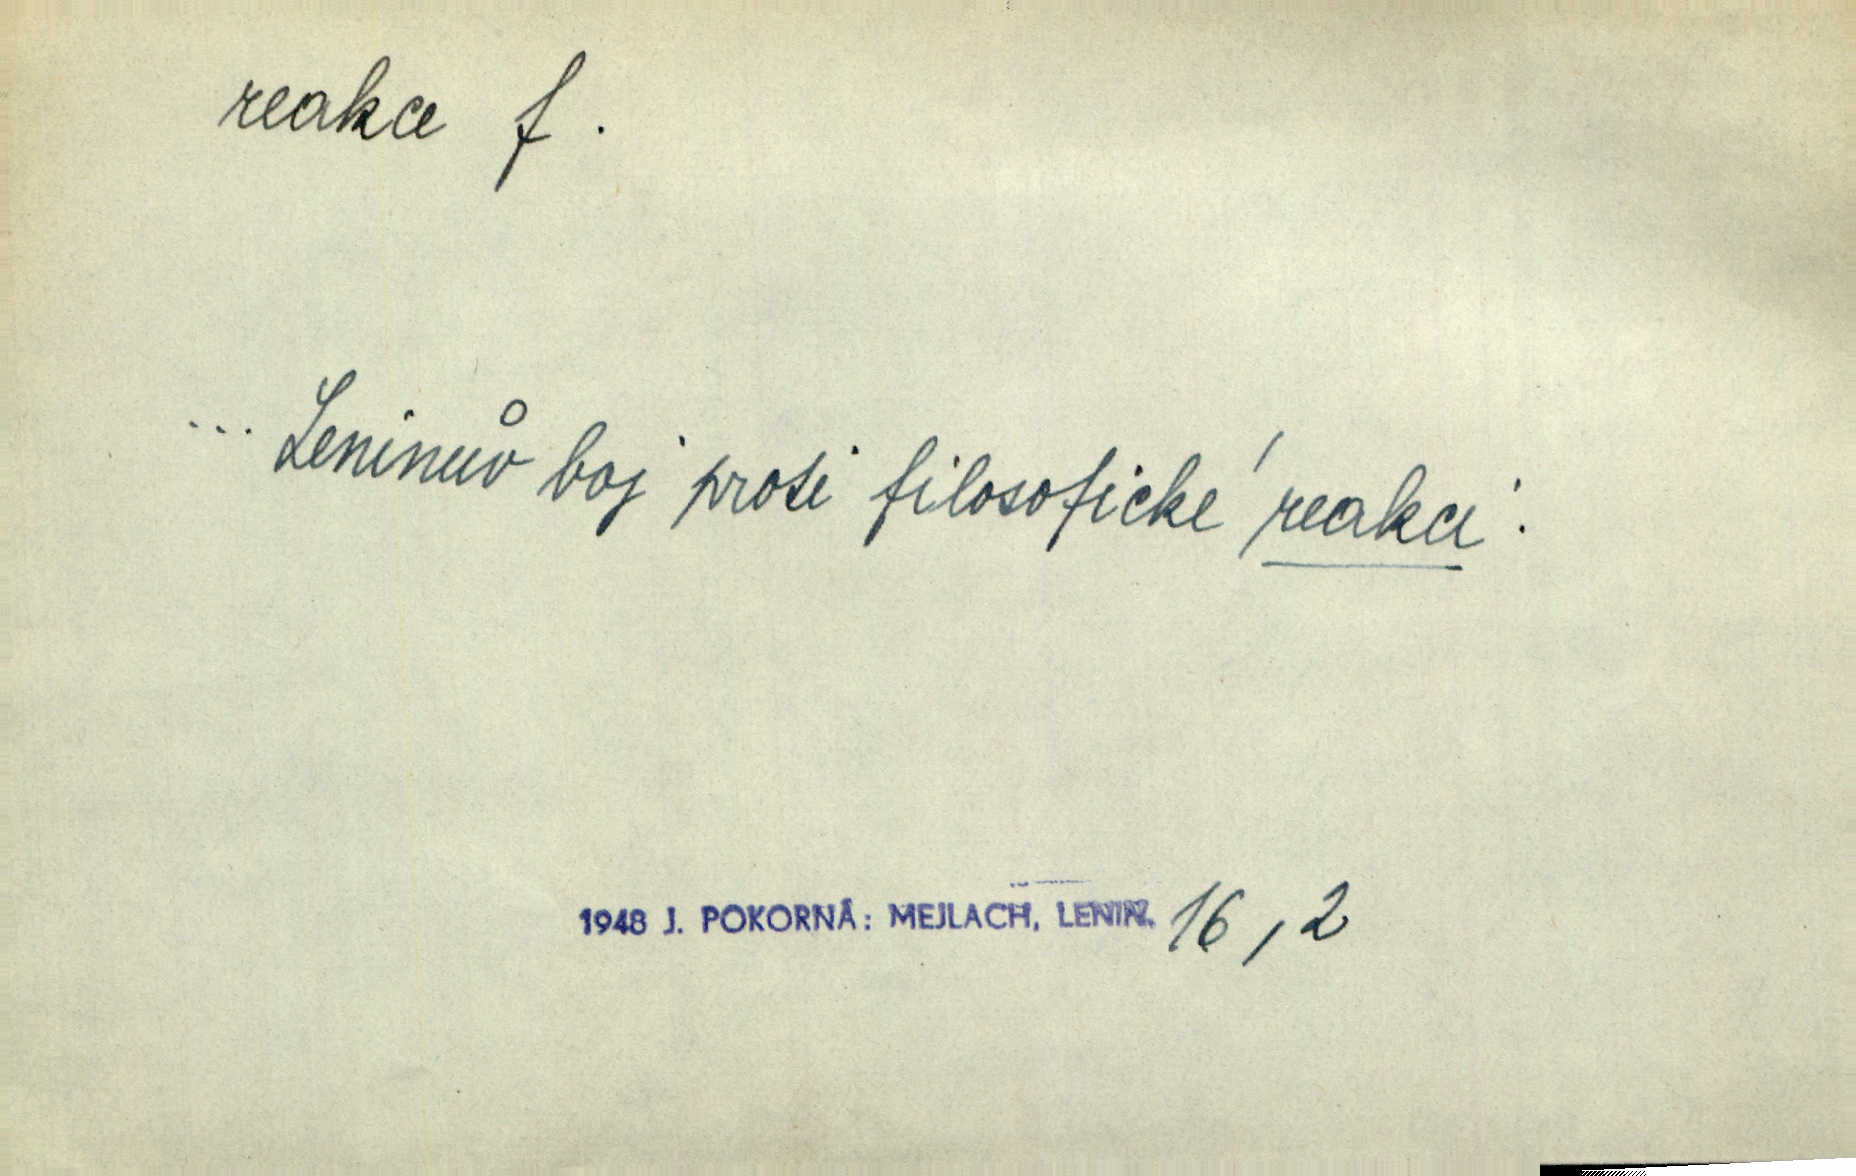 reakce f.
... Leninův boj proti filosofické reakci.
1948 J. POKORNÁ: MEJLACH, LENIN. 16, 2